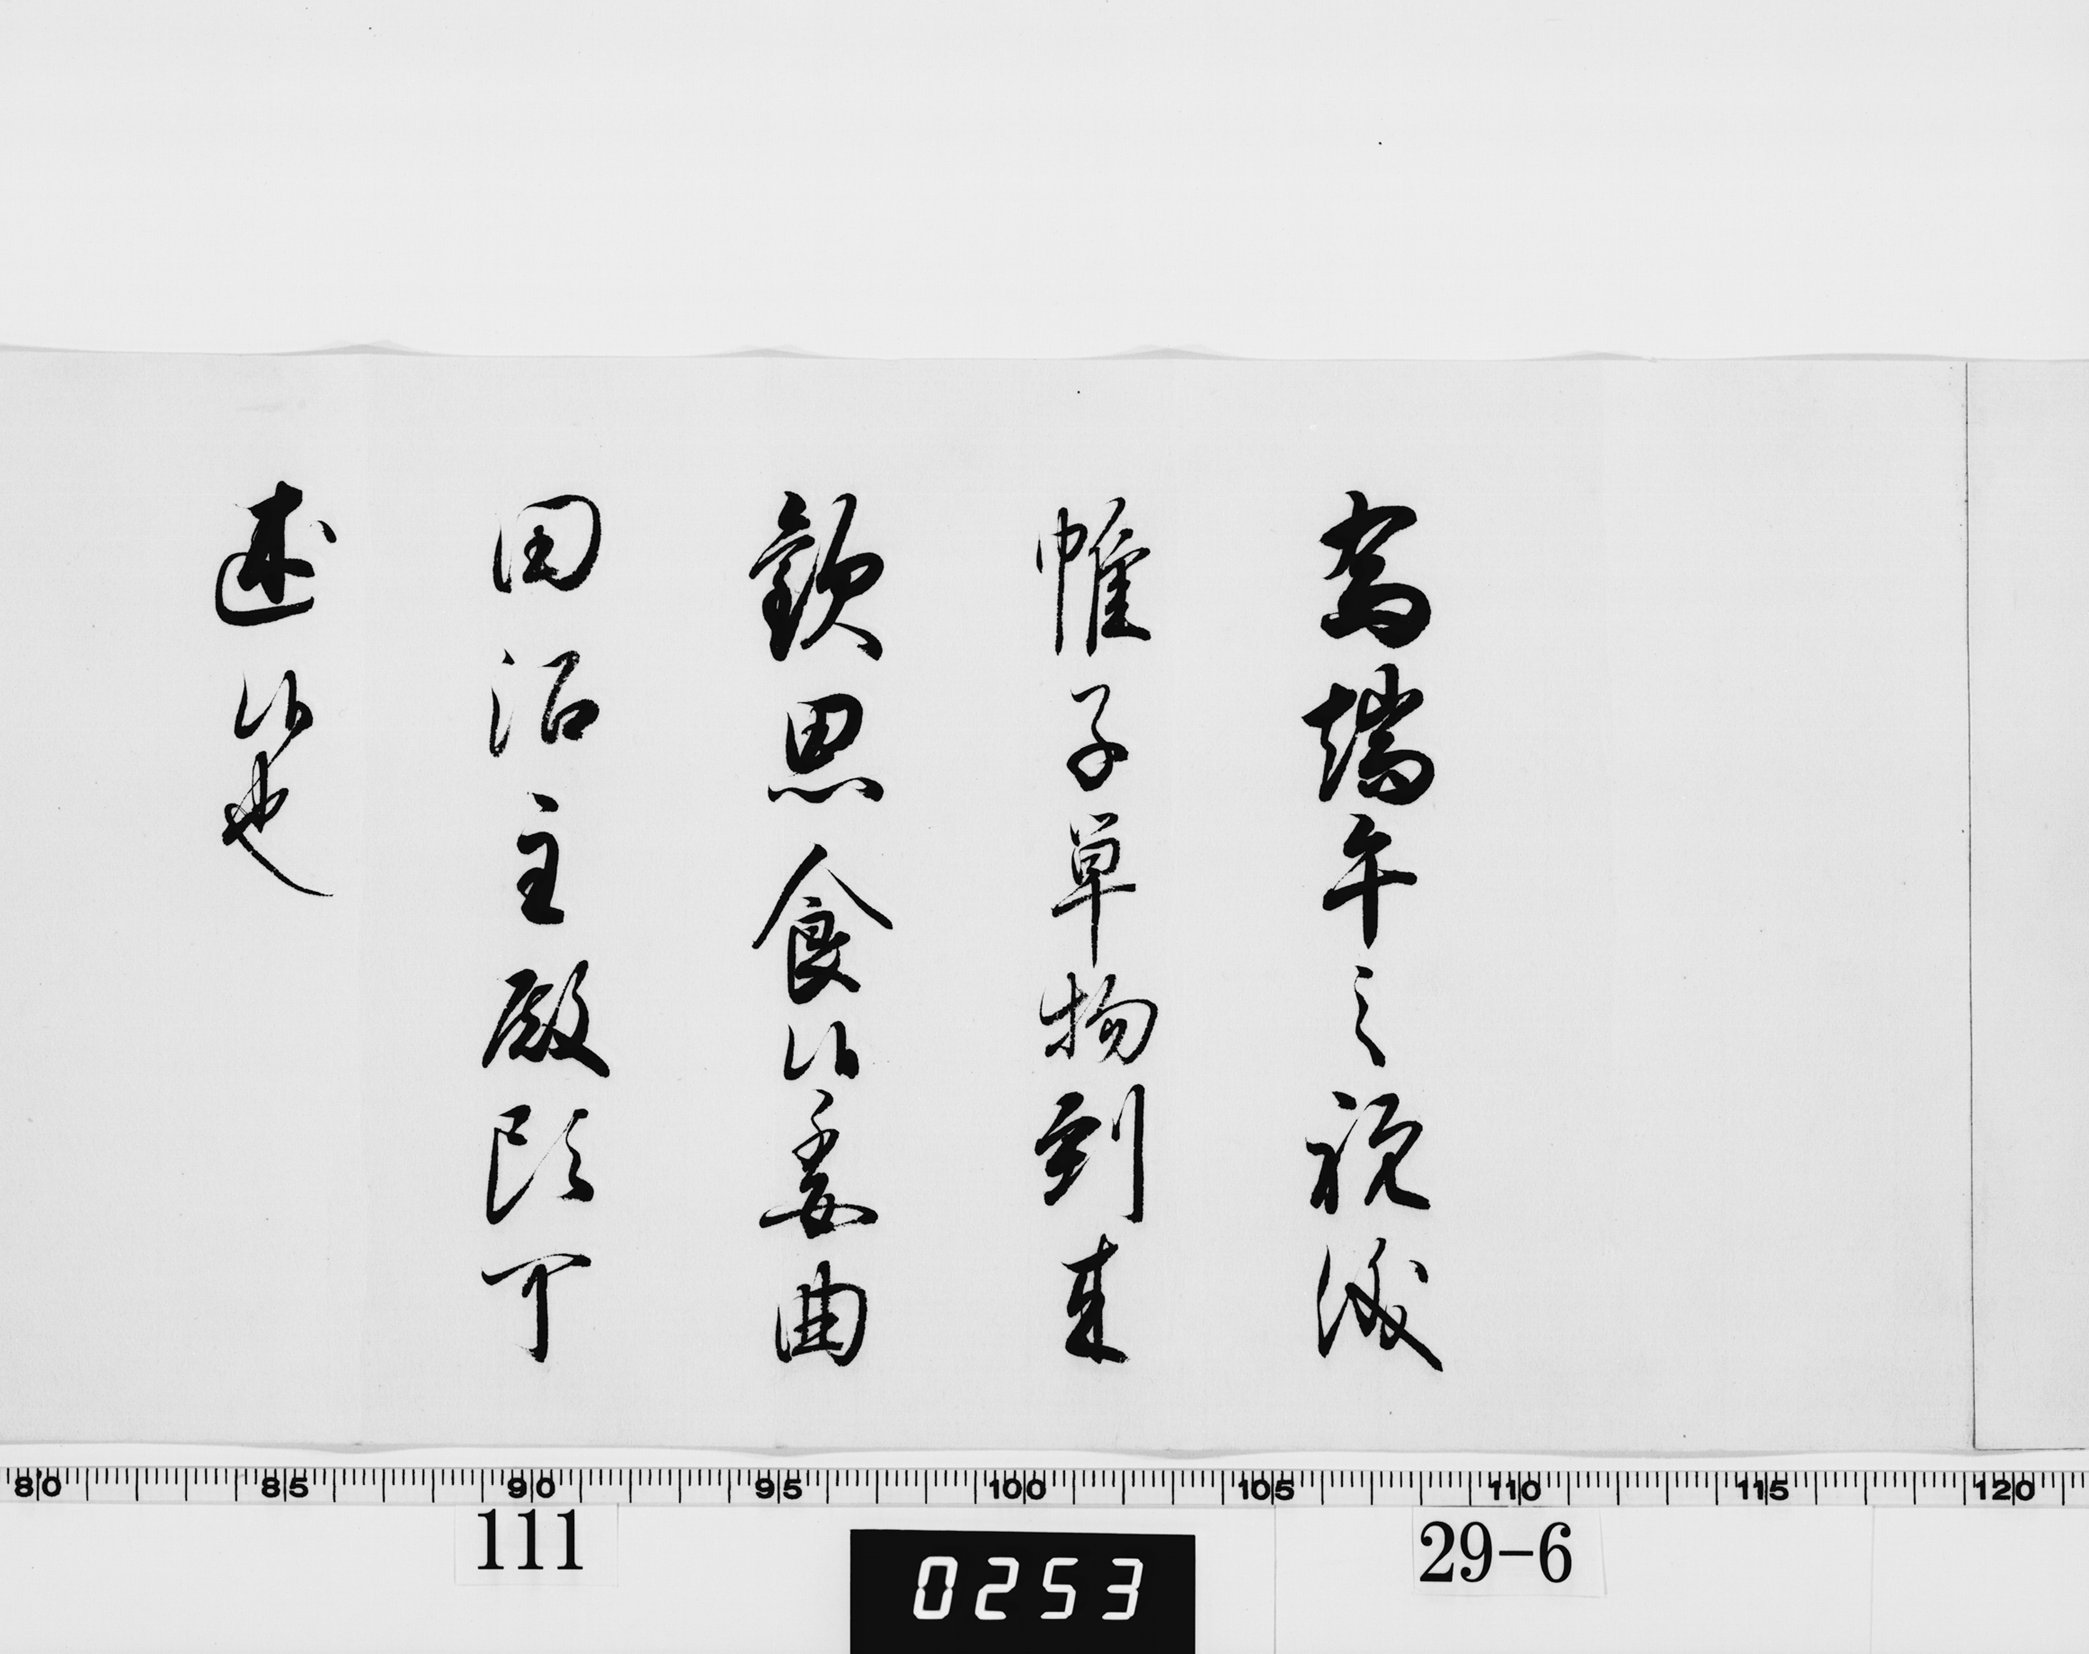 為端午之祝儀
帷子単物到来
歓思食候委曲
田沼主殿頭可
述候也
80 85 90 95 100 105 110 115 120
111
0253
29-6